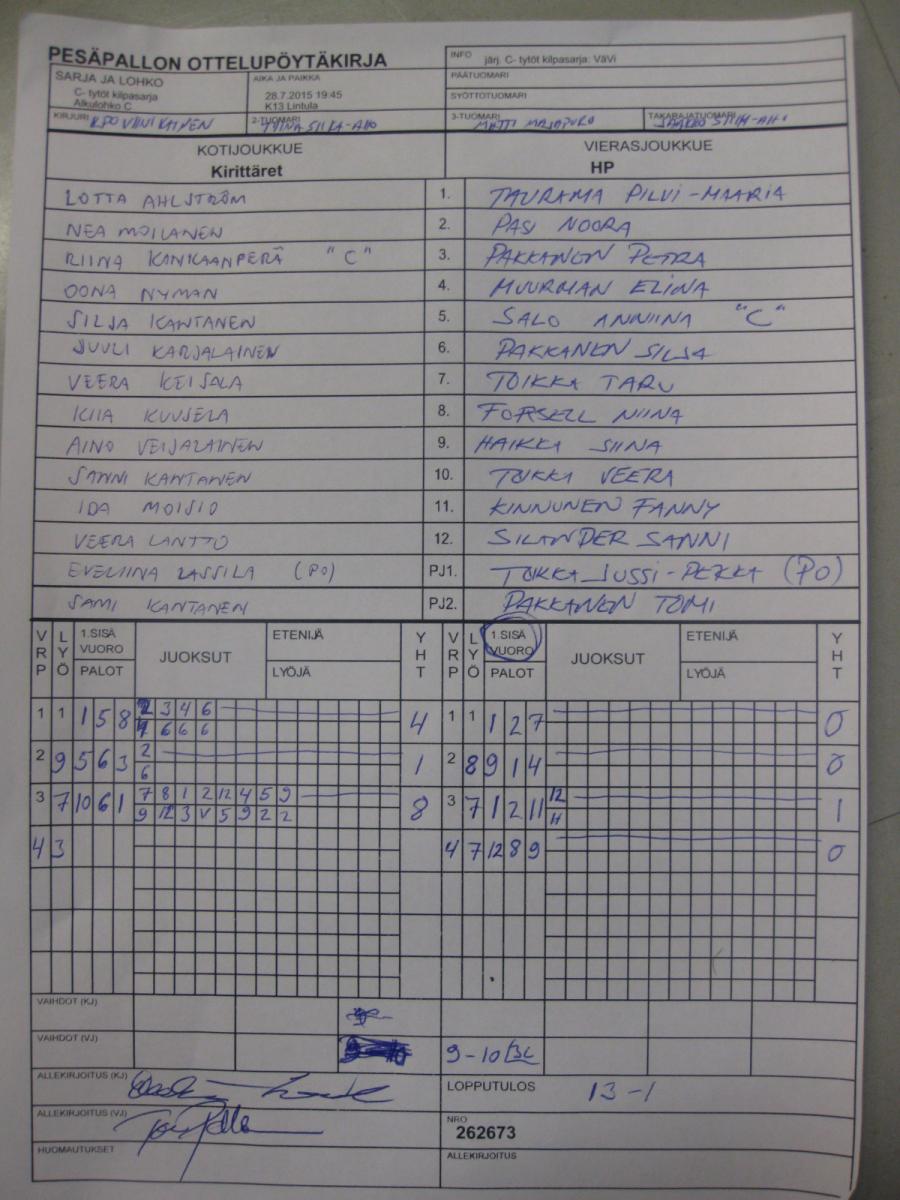 PESÄPALLON OTTELUPÖYTÄKIRJA
INFO järj. C- tytöt kilpasarja: VäVi
SARJA JA LOHKO
C- tytöt kilpasarja
Alkulohko C
AIKA JA PAIKKA
28.7.2015 19:45
K13 Lintula
PÄÄTUOMARI
SYÖTTÖTUOMARI
KIRJURI VIINIKAINEN
2-TUOMARI TIINA SIIKA-AHO
3-TUOMARI MATTI
TAKARAJATUOMARI JAAKKO SIIKA-AHO
KOTIJOUKKUE VIERASJOUKKUE
Kirittäret HP
LOTTA AHLSTRÖM 1. TAURAMA PILVI-MAARIA
NEA MOILANEN 2. PASI NOORA
RIINA KANKAANPERÄ "C" 3. PAKKANEN PETRA
OONA NYMAN 4. MUURMAN ELINA
SILJA KANTANEN 5. SALO ANNIINA "C"
SUULI KARJALAINEN 6. PAKKANEN SILJA
VEERA KEISALA 7. TOIKKA TARU
KIIA KUUSELA 8. FORSELL NIINA
AINO VEIJALAINEN 9. HAIKKA SIINA
SANNI KANTANEN 10. TOIKKA VEERA
IDA MOISIO 11. KINNUNEN FANNY
VEERA LANTTO 12. SILANDER SANNI
EVELIINA LASSILA (PO) PJ1. TOIKKA JUSSI-PEKKA (PO)
SAMI KANTANEN PJ2. PAKKANEN TOMI
VRP LYÖ 1.SISÄ VUORO PALOT JUOKSUT ETENIJÄ LYÖJÄ YHT VRP LYÖ 1.SISÄ VUORO PALOT JUOKSUT ETENIJÄ LYÖJÄ YHT
1 1 1 5 8 2 3 4 6 4 1 1 1 2 7 0
6 6 6
2 9 5 6 3 2 1 2 8 9 1 4 0
6
3 7 10 6 1 7 8 1 2 12 4 5 9 8 3 7 1 2 11 12 1
9 12 3 V 5 9 2 2 11
4 3 4 7 12 8 9 0
VAIHDOT (KJ)
VAIHDOT (VJ) 9-10
ALLEKIRJOITUS (KJ) LOPPUTULOS 13-1
ALLEKIRJOITUS (VJ) NRO
262673
HUOMAUTUKSET ALLEKIRJOITUS